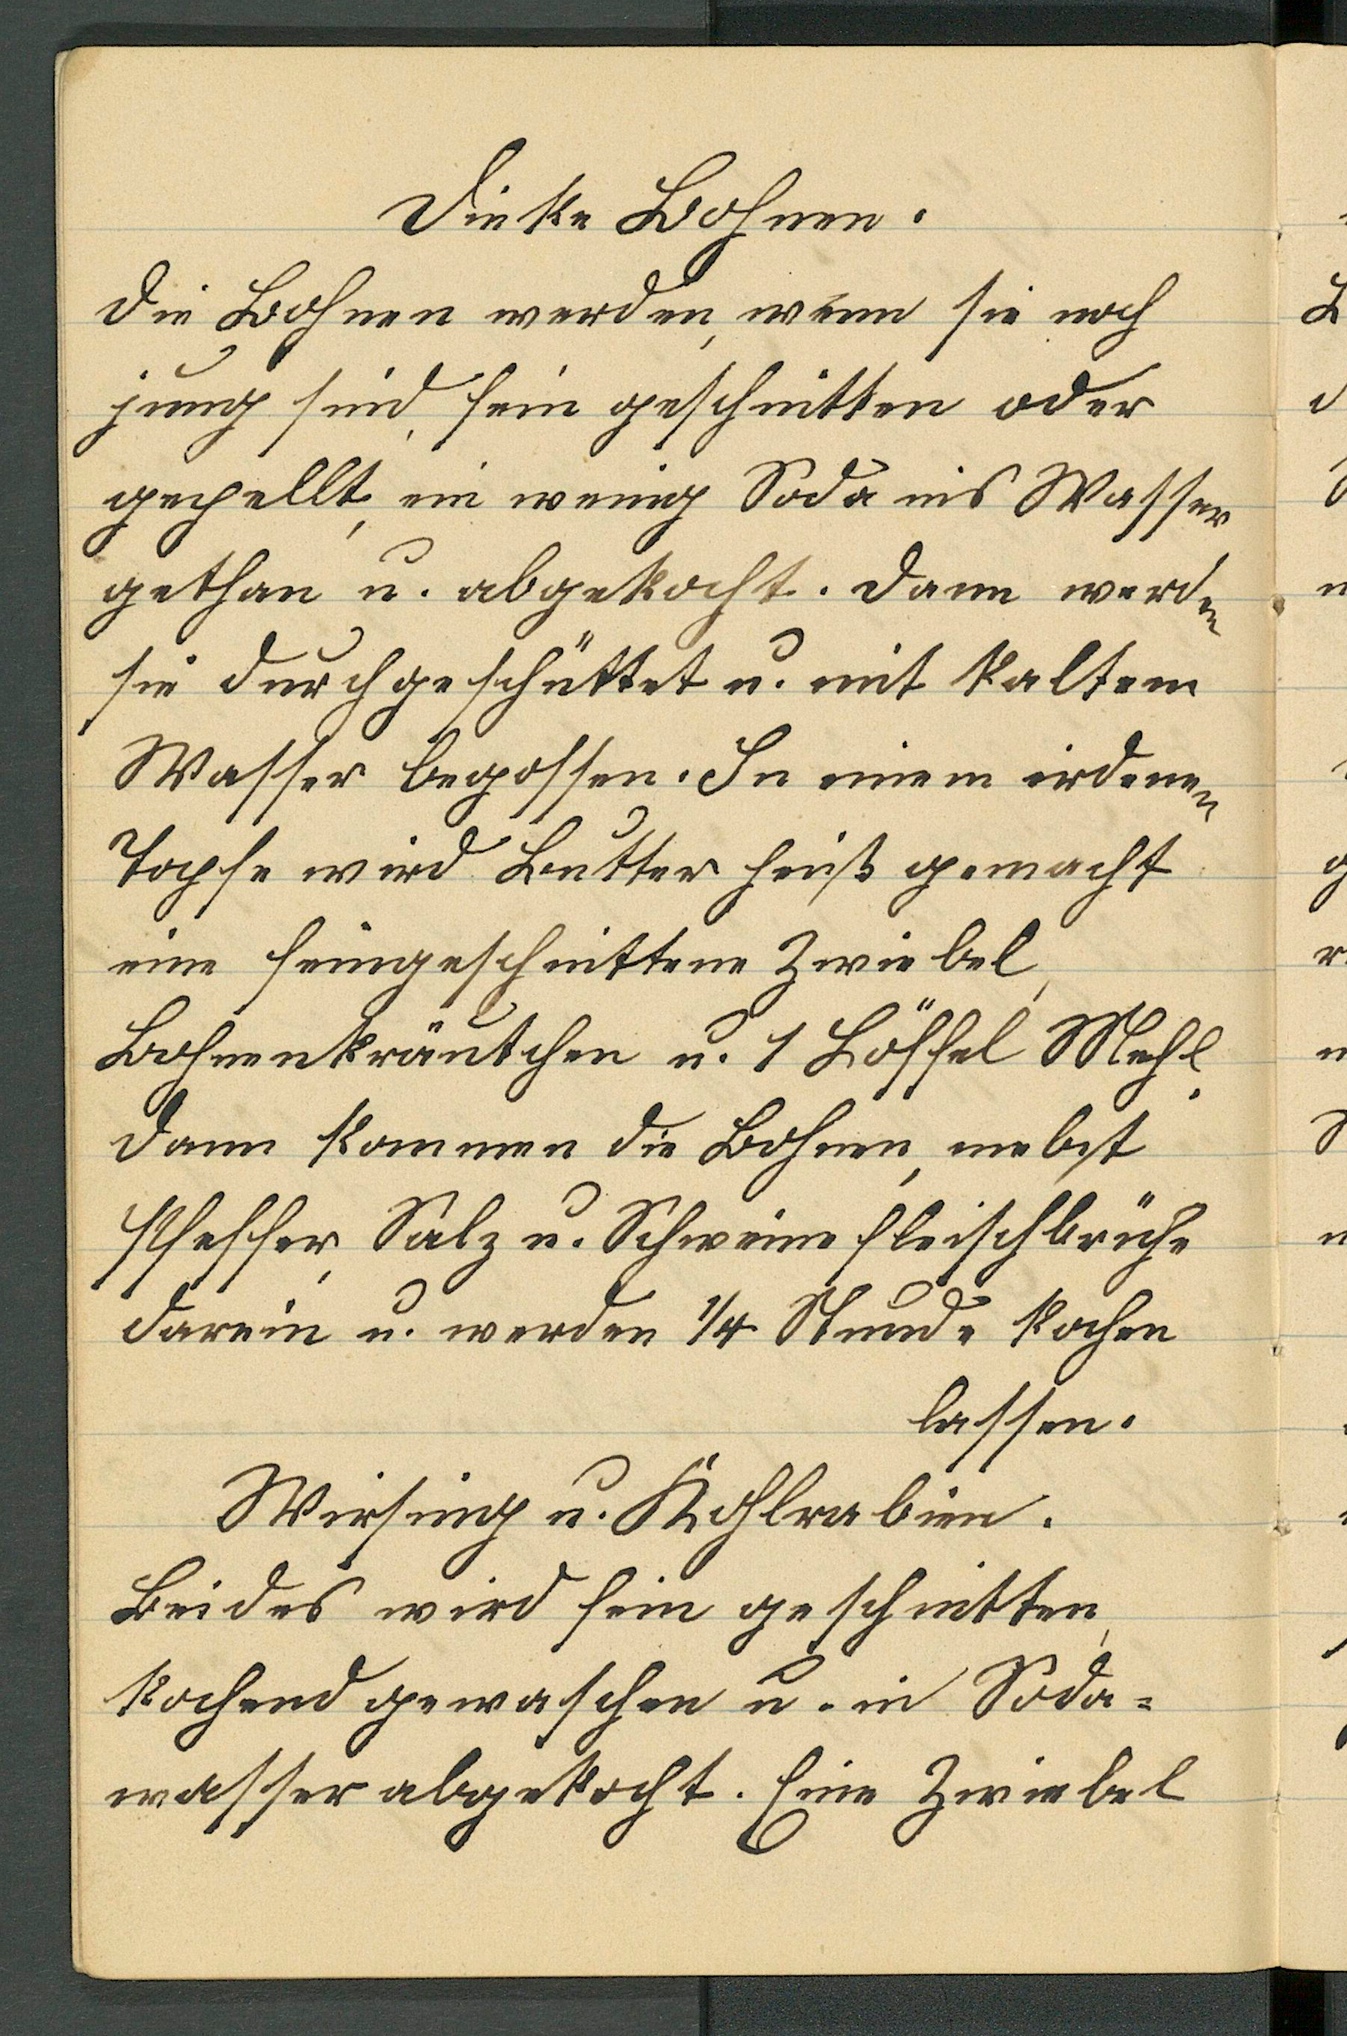 Dicke Bohnen.
Die Bohnen werden, wenn sie noch
jung sind, fein geschnitten oder
gepellt, ein wenig Soda ins Wasser
gethan u. abgekocht. Dann werden
sie durchgeschüttet u. mit kaltem
Wasser begossen. In einem irdenen
Topfe wird Butter heiß gemacht
eine feingeschnittene Zwiebel,
Bohnenkräutchen u. 1 Löffel Mehl.
Dann kommen die Bohnen, nebst
Pfeffer, Salz u. Schweinefleischbrühe
darein u. werden 1/4 Stunde kochen
lassen.
Wirsing u. Kohlrabien.
Beides wird fein geschnitten,
kochend gewaschen u. in Soda=
wasser abgekocht. Eine Zwiebel